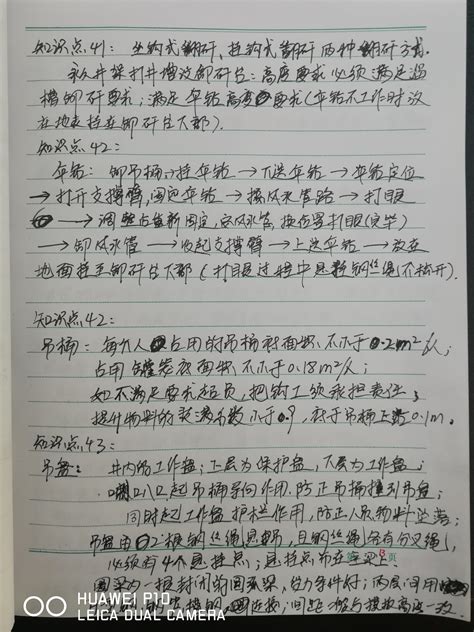 知识点41：坐钩式翻矸、挂钩式翻矸两种翻矸方式.
永久井架打井增设卸矸台：高度要求必须满足溜
槽卸矸要求；满足伞钻高度要求（伞钻不工作时放
在地表挂在卸矸台下部）.
知识点42：
伞钻：卸吊桶→挂伞钻→下送伞钻→伞钻定位
→打开支撑臂，固定伞钻→接风水管路→打眼
→调整占重新固定，风水管，换位置打眼（完毕）
→卸风水管→收起支撑臂→上送伞钻→放在
地面挂至卸矸台下部（打眼过程中悬钢丝绳不松开）.
知识点42：
吊桶：每个人占用的吊桶底面积不小于0.2m²/人；
占用罐笼底面积不小于0.18m²/人；
如不满足要求超员，把钩工须承担责任；
提升物料的装满系数小于0.9，低于吊桶上沿0.1m.
知识点43：
吊盘：井内的工作盘；上层为保护盘，下层为工作盘；
喇叭口起吊桶导向作用，防止吊桶撞到吊盘；
同时起工作盘护栏作用，防止人员物料坠落；
吊盘由2根钢丝绳悬吊，且钢丝绳须有分叉绳，
必须有4个悬挂点；悬挂点布在
圈梁为一根封闭的圆弧梁，受力条件好；两层间用
HUAWEI P10
LEICA DUAL CAMERA